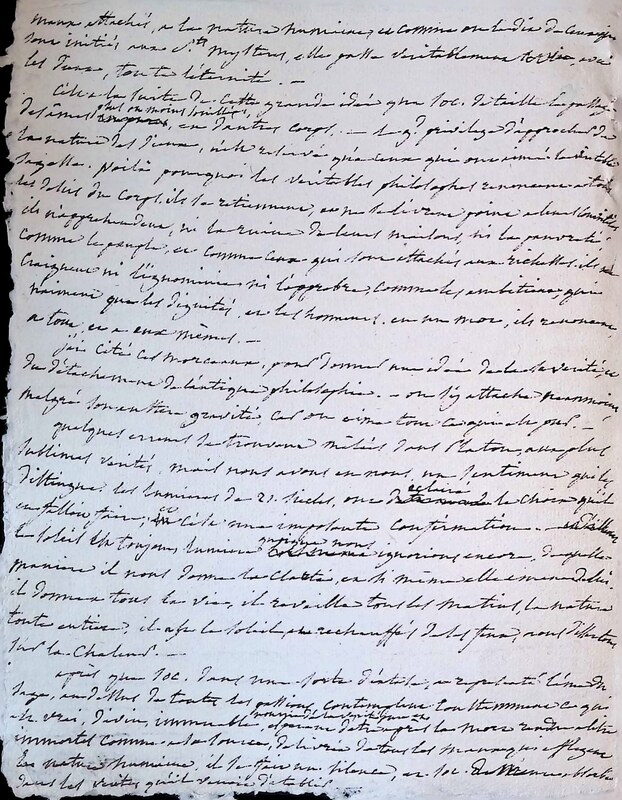 maux attachés, a la nature humaine, et comme on le dit de ceux qui
sont initiés aux Sts mysteres, elle passe veritablement avec
les Dieux, toute l'éternité. —
C'est a la suite de cette grande idée que Soc. détaille le passage
des âmes plus ou moins souillées, en d'autres corps. — le gd privilege d'approcher de
la nature des Dieux, n'est reservé qu'a ceux qui ont aimé la veritable
sagesse. Voilà pourquoi les veritables philosophes renoncent a tous
les desirs du corps, ils se retiennent, et ne se livrent point a leurs
ils n'apprehendent, ni la ruine de leurs maisons, ni la pauvreté
comme le peuple, et comme ceux qui sont attachés aux richesses. ils ne
craignent ni l'ignominie ni l'opprobre, comme les ambitieux, qui
n'aiment que les dignités, et les honneurs. en un mot, ils renoncent
a tout, et a eux mêmes. —
j'ai cité ces morceaux, pour donner une idée de la severité, et
du détachement de l'antique philosophie. — on s'y attache neanmoins
malgré son austere gravité car on aime tout ce qui est pur. —
quelques erreurs se trouvent mêlées dans Platon, aux plus
sublimes verités, mais nous avons en nous, un sentiment qui les
distingue. les lumieres de 21. siecles, ont éclairé le choix qu'il
en falloit faire, et c'est une importante confirmation. —
le soleil est toujours lumiere quoique nous ignorions encore, de quelle
maniere il nous donne la clarté, et si même elle emane de lui.
il donne a tous la vie, il reveille tous les matins, la nature
toute entiere, il est le soleil et rechauffés de ses feux, nous dissertons
sur la chaleur. —
après que Soc. dans une sorte d'extase, a representé l'âme du
sage, au dessus de toutes les passions, contemplant continuellement ce qui
est vrai, divin, immuable, et après la mort rendue a l'être
immortel comme a sa source, delivrée de tous les maux qui affligent
la nature humaine, il se fait un silence, et Soc.
dans les verités qu'il venoit d'établir